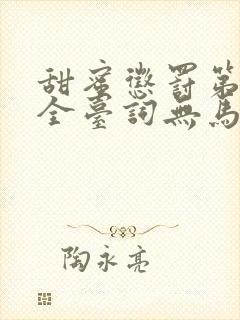 甜蜜懲罰第
全臺詞無馬
陶永亮